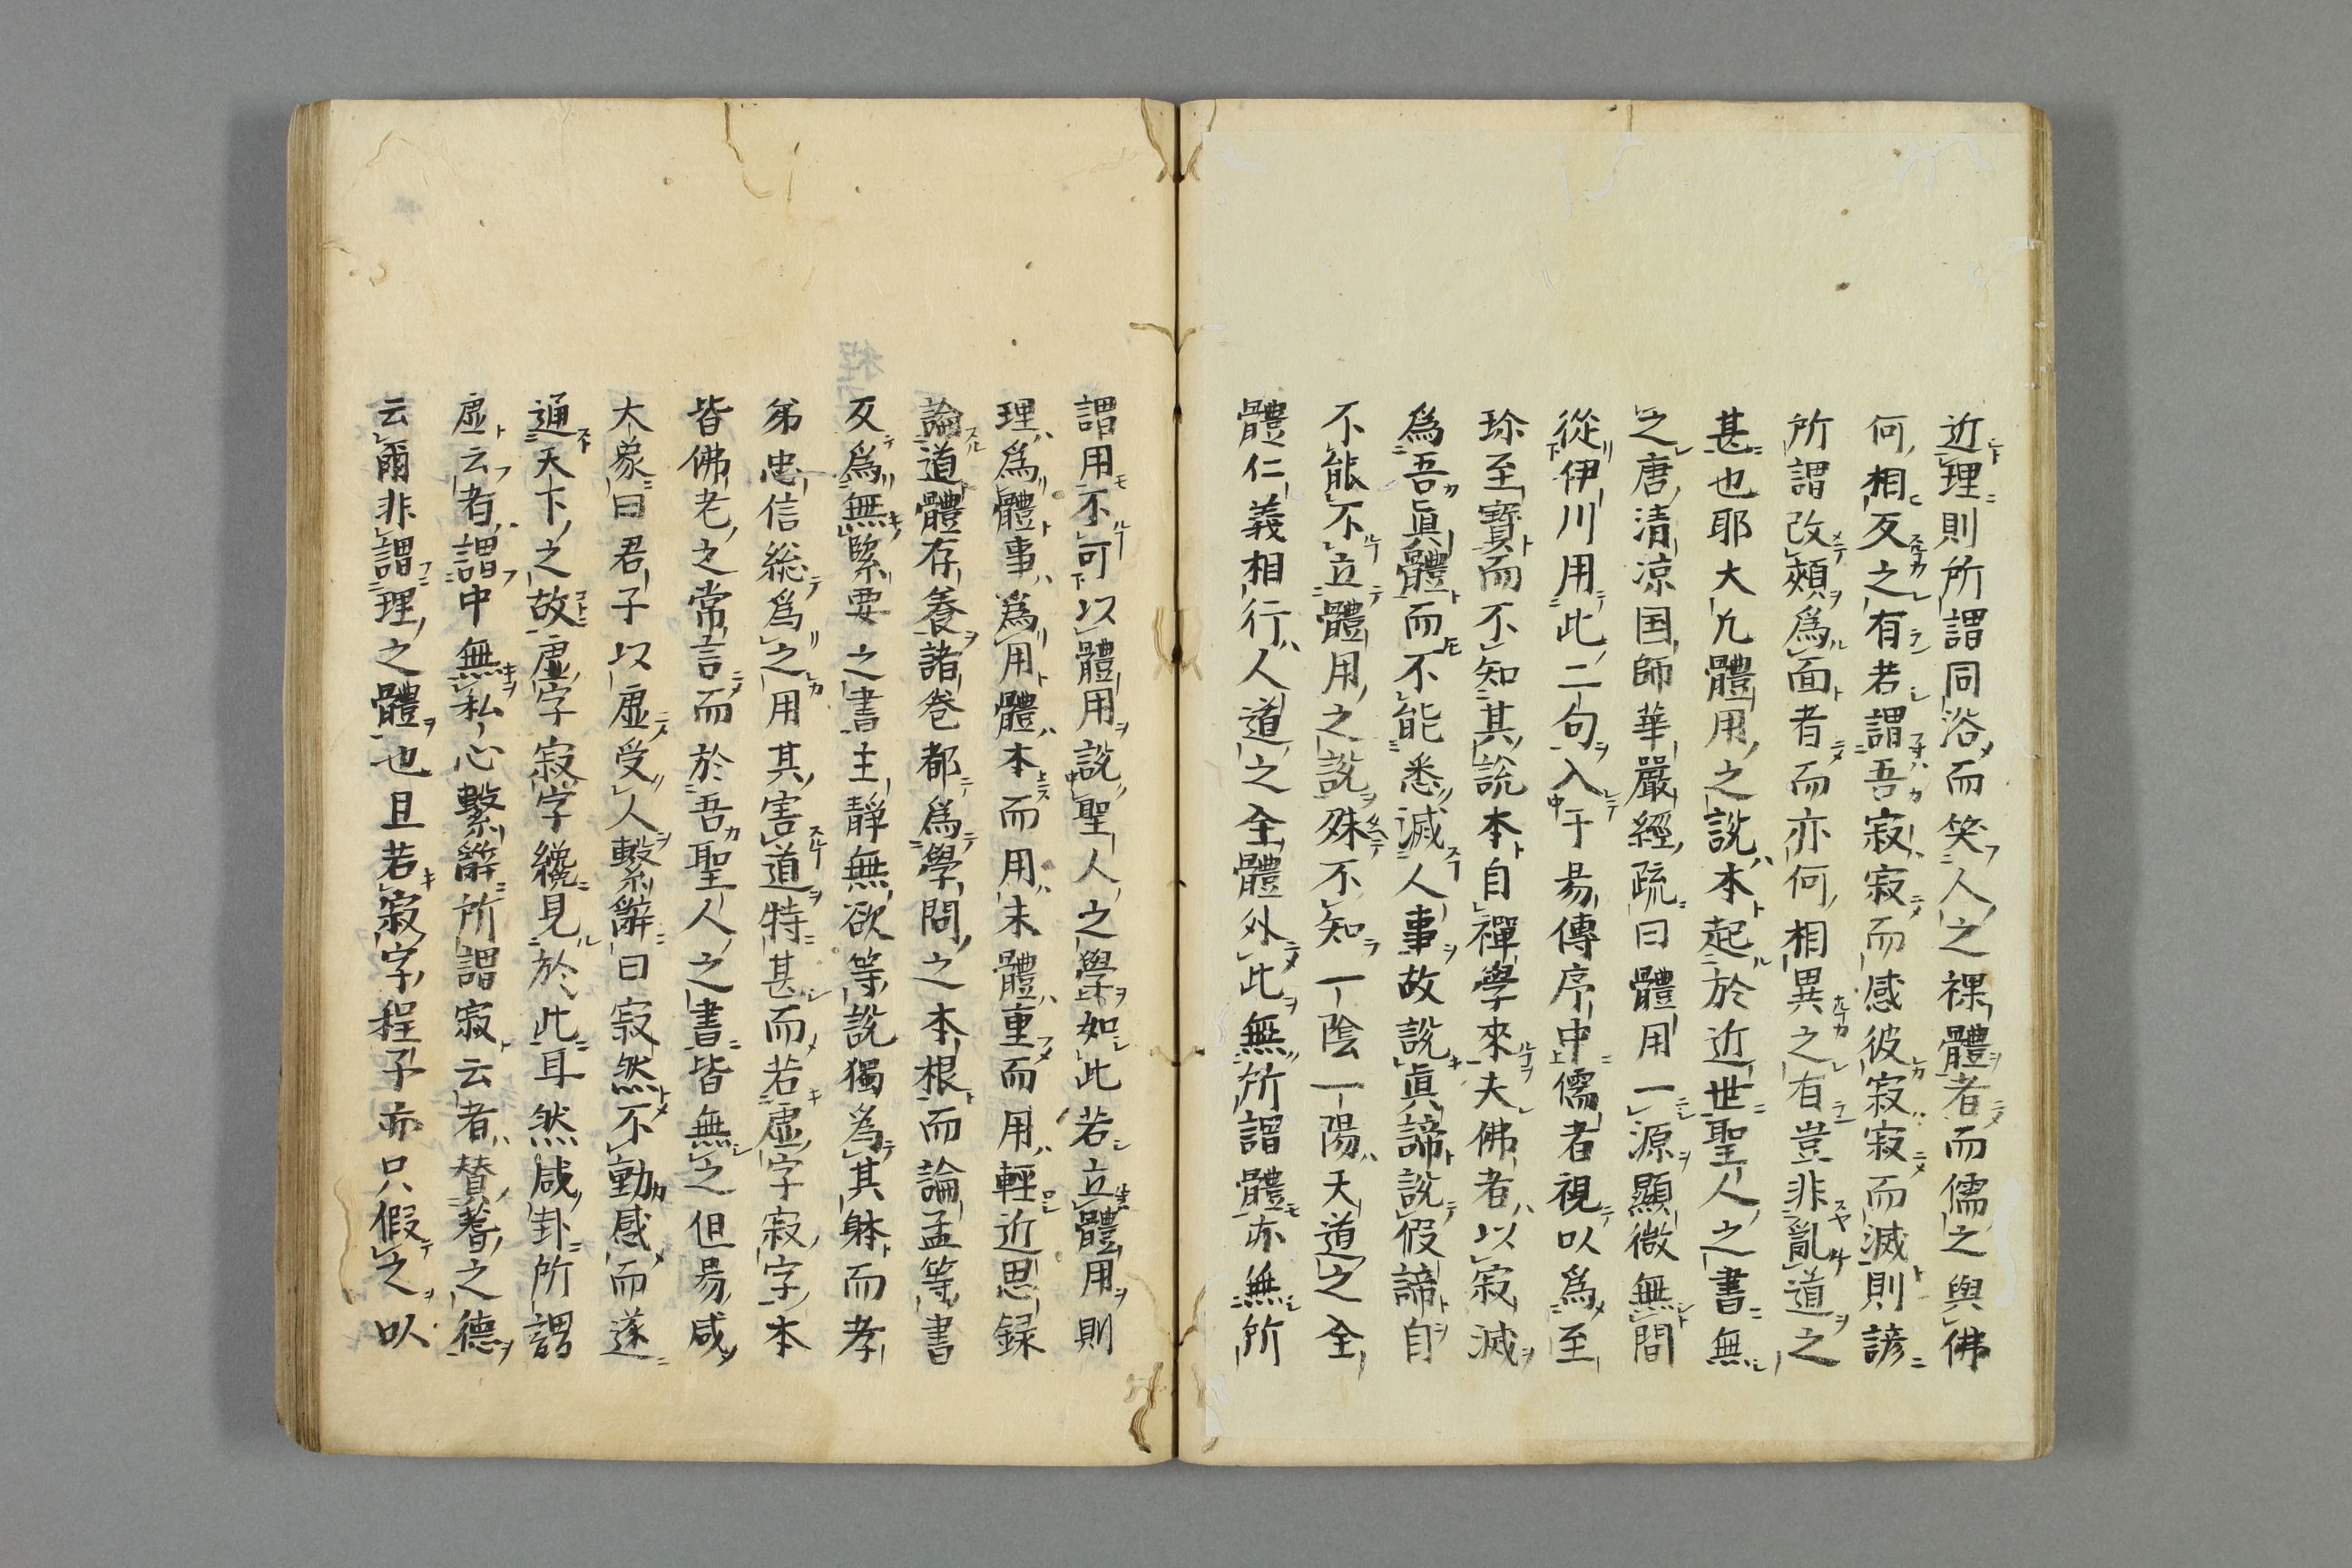 近理則所謂同浴而笑人之裸體者而儒之與佛
何相反之有若謂吾寂寂而感彼寂寂而滅則諺
所謂改頰為面者而亦何相異之有豈非亂道之
甚也耶大凢體用之說本起於近世聖人之書無
之唐清凉国師華嚴經疏曰體用一源顯微無間
從伊川用此二句入于易傳序中儒者視以為至
珎至寶而不知其說本自禪學來夫佛者以寂滅
為吾真體而不能悉滅人事故說真諦說假諦自
不能不立體用之說殊不知一陰一陽天道之全
體仁義相行人道之全體外此無所謂體亦無所
謂用不可以體用說聖人之學如此若立體用則
理為體事為用體本而用末體重而用輕近思録
論道體存養諸卷都為學問之本根而論孟等書
反為無緊要之書主靜無欲等說獨為其躰而孝
弟忠信総為之用其害道特甚而若虛字寂字本
皆佛老之常言而於吾聖人之書皆無之但易咸
大象曰君子以虛受人繫辭曰寂然不動感而遂
通天下之故虛字寂字纔見於此耳然咸卦所謂
虛云者謂中無私心繫辭所謂寂云者賛蓍之德
云爾非謂理之體也且若寂字程子亦只假之以